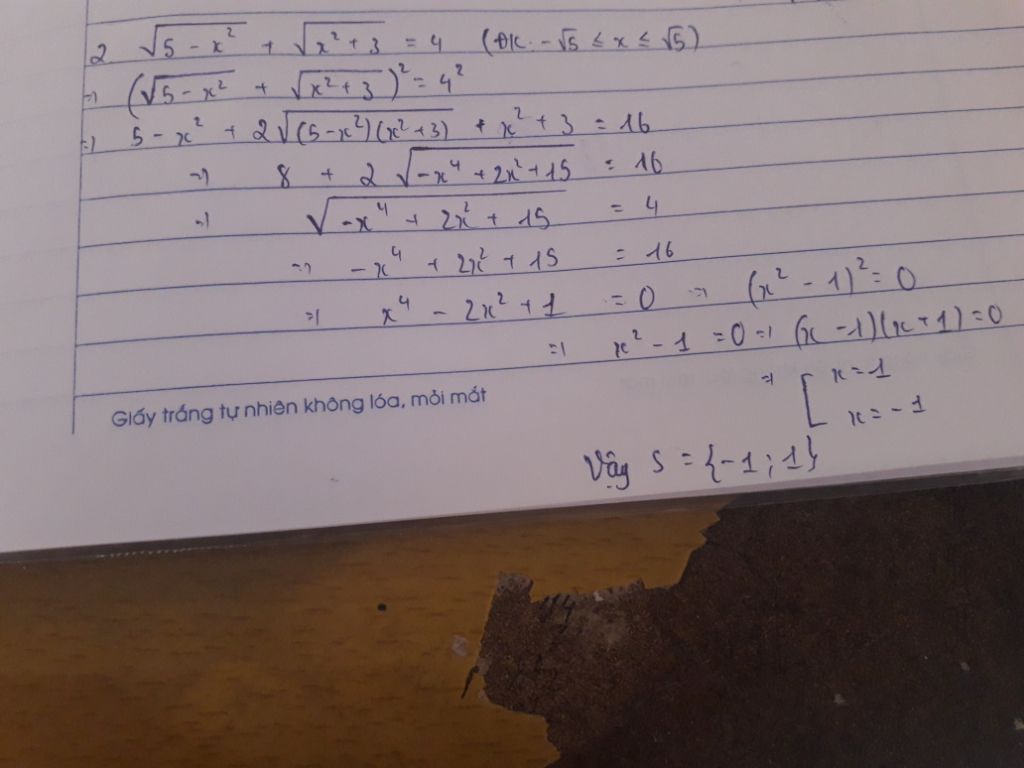 2. √(5 - x²) + √(x² + 3) = 4 (ĐK: -√5 ≤ x ≤ √5)
⇒ (√(5 - x²) + √(x² + 3))² = 4²
⇒ 5 - x² + 2√((5-x²)(x²+3)) + x² + 3 = 16
⇒ 8 + 2√(-x⁴ + 2x² + 15) = 16
⇒ √(-x⁴ + 2x² + 15) = 4
⇒ -x⁴ + 2x² + 15 = 16
⇒ x⁴ - 2x² + 1 = 0 ⇒ (x² - 1)² = 0
⇒ x² - 1 = 0 ⇒ (x - 1)(x + 1) = 0
⇒ [ x = 1
x = -1
Giấy trắng tự nhiên không lóa, mỏi mắt
Vậy S = {-1; 1}